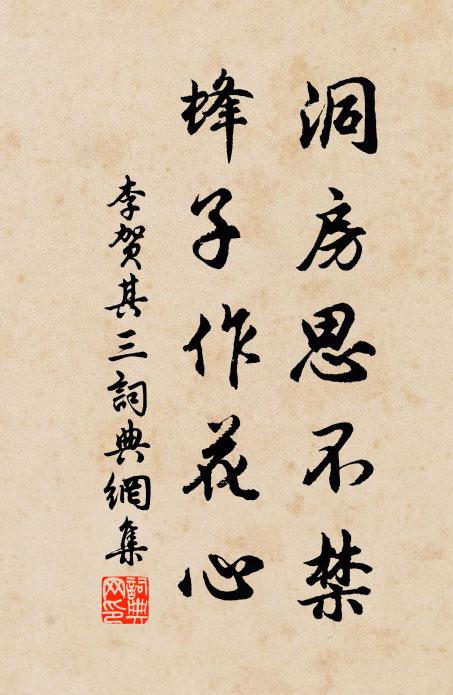 洞房思不禁
蜂子作花心
李贺其三詞典網集
詞典网印